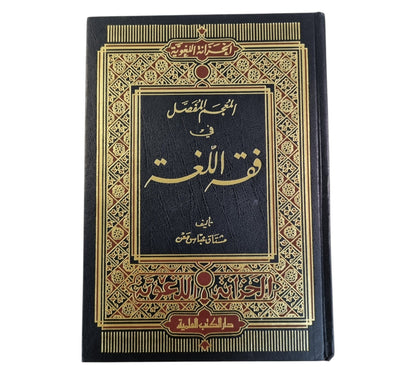 الخزانة اللغوية
المعجم المفصل
في
فقه اللغة
تأليف
مشتاق عباس معن
الخزانة اللغوية
دار الكتب العلمية